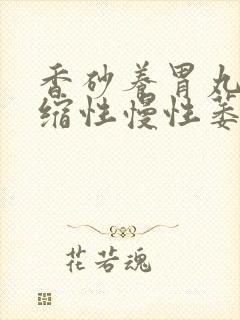 香砂养胃丸
缩性慢性萎
花若魂